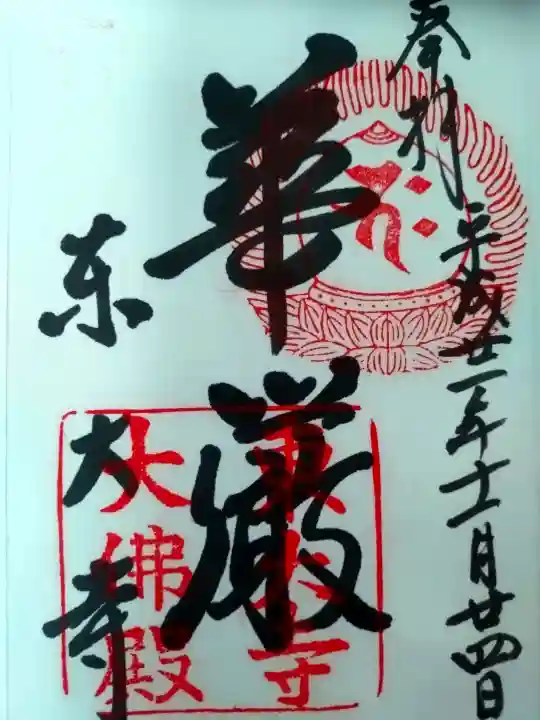 奉拝
平成廿一年十一月廿四日
華厳
東大寺
東大寺
大佛殿